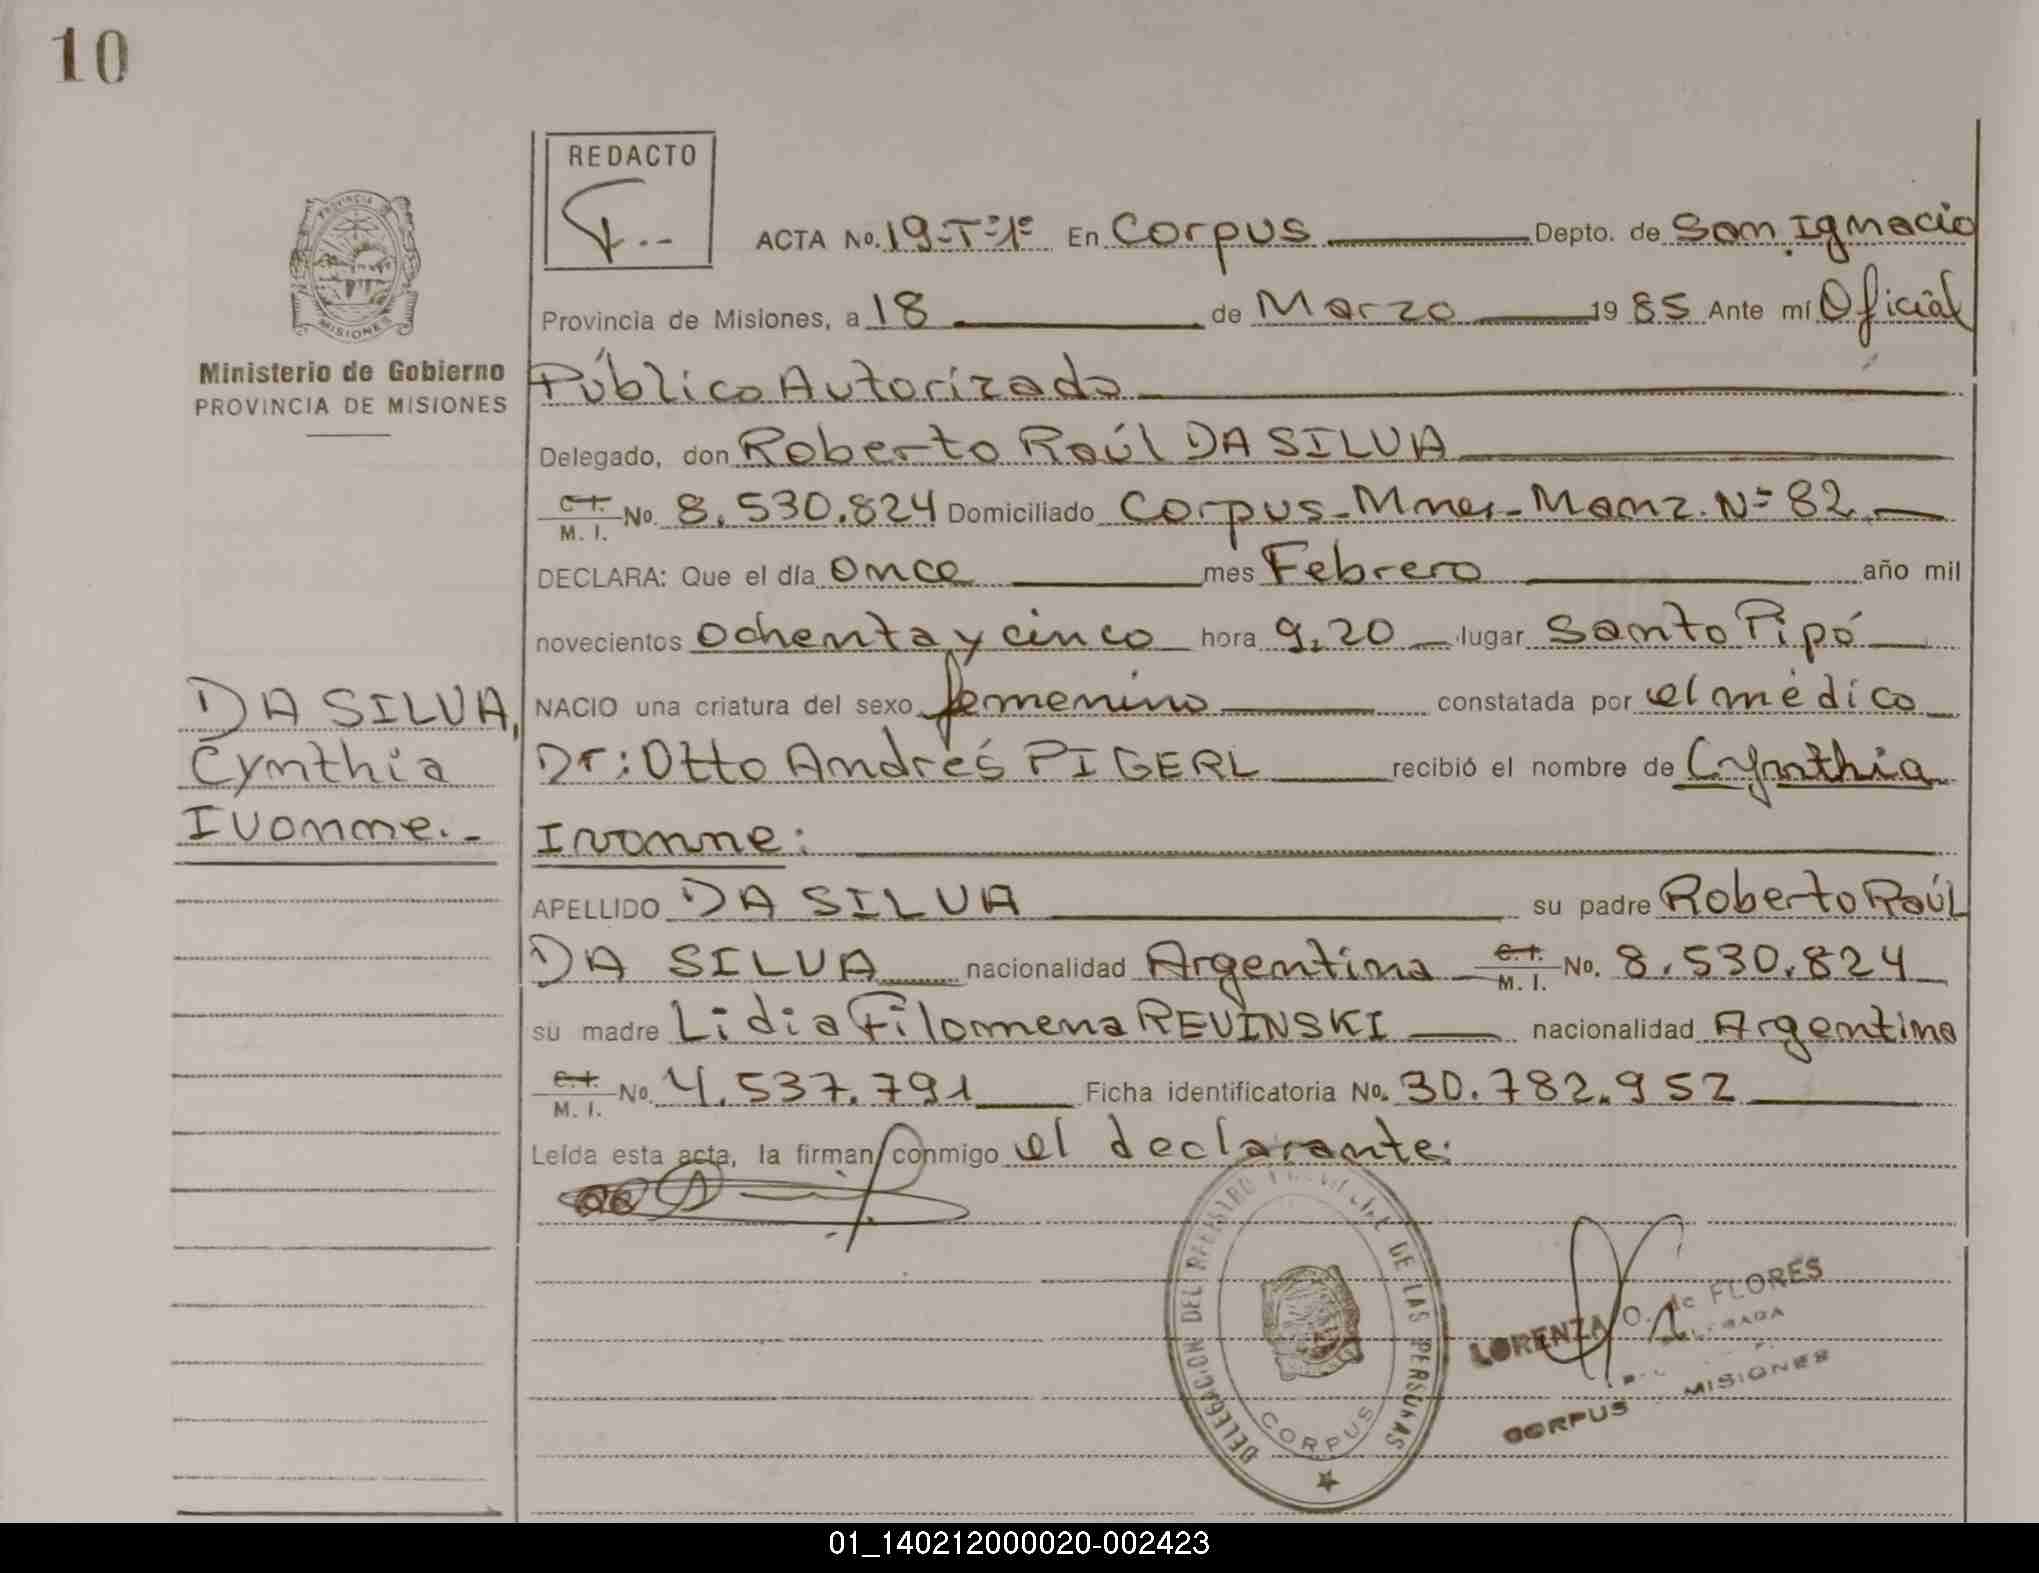 10
REDACTO
ACTA No. 19-Tº1º En Corpus Depto. de San Ignacio
PROVINCIA
MISIONES
Provincia de Misiones, a 18 de Marzo 1985 Ante mí Oficial
Ministerio de Gobierno
PROVINCIA DE MISIONES
Público Autorizado
Delegado, don Roberto Raúl DA SILVA
C.I. M. I. No. 8.530.824 Domiciliado Corpus-Mnes-Manz. Nº 82.
DECLARA: Que el día once mes Febrero año mil
novecientos ochenta y cinco hora 9,20 lugar Santo Pipó
NACIO una criatura del sexo femenino constatada por el médico
DA SILVA,
Cynthia
Ivonne.-
Dr: Otto Andrés PIGERL recibió el nombre de Cynthia
Ivonne:
APELLIDO DA SILVA su padre Roberto Raúl
DA SILVA nacionalidad Argentina C.I. M. I. No. 8.530.824
su madre Lidia Filomena REVINSKI nacionalidad Argentina
C.I. M. I. No. 4.537.791 Ficha identificatoria No. 30.782.952
Leída esta acta, la firman conmigo el declarante:
DELEGACION DEL REGISTRO DE LAS PERSONAS
CORPUS
LORENZA O. de FLORES
CORPUS MISIONES
01_140212000020-002423